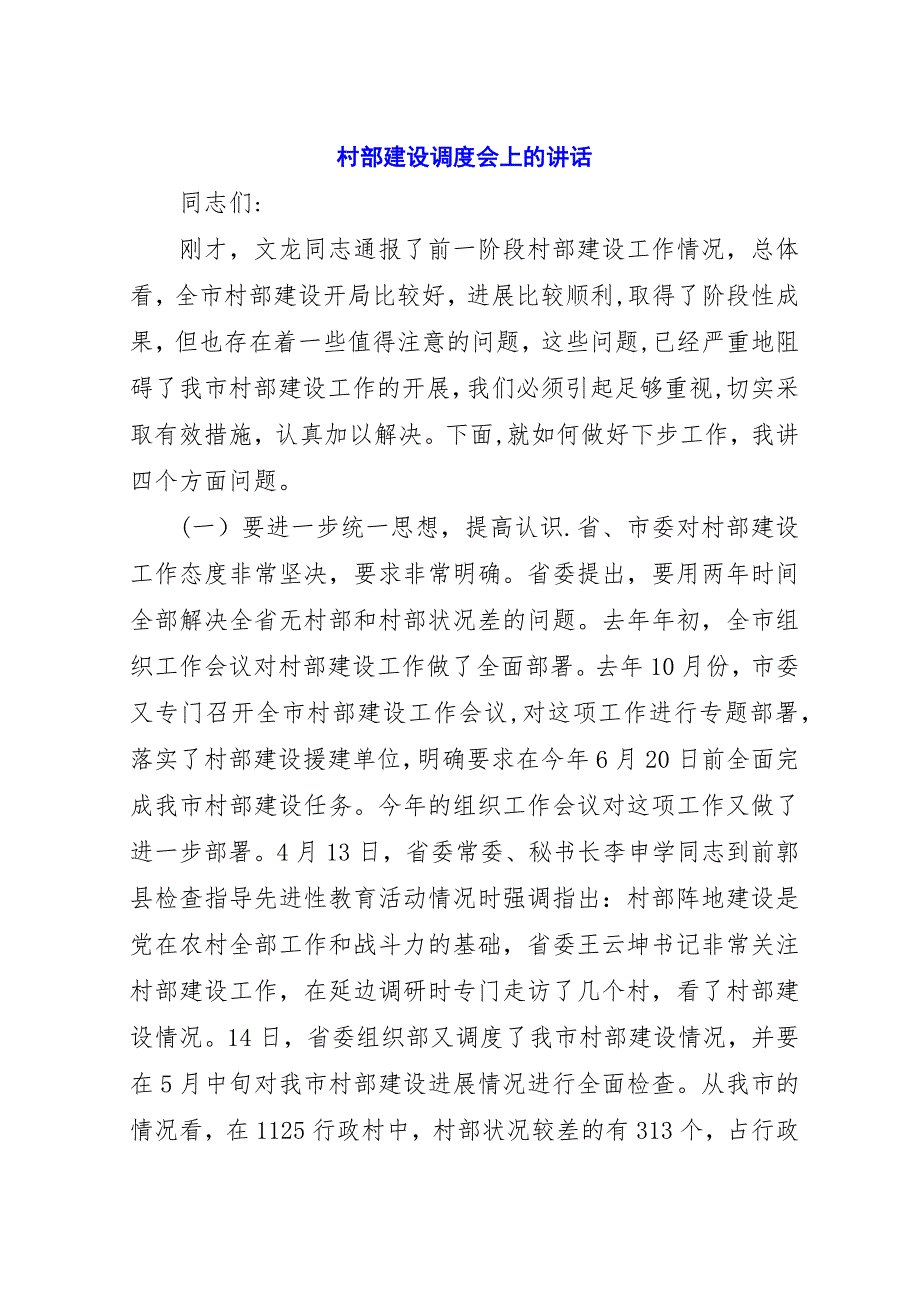 村部建设调度会上的讲话
同志们:
刚才，文龙同志通报了前一阶段村部建设工作情况，总体
看，全市村部建设开局比较好，进展比较顺利,取得了阶段性成
果，但也存在着一些值得注意的问题，这些问题,已经严重地阻
碍了我市村部建设工作的开展,我们必须引起足够重视,切实采
取有效措施，认真加以解决。下面,就如何做好下步工作，我讲
四个方面问题。
(一）要进一步统一思想，提高认识.省、市委对村部建设
工作态度非常坚决，要求非常明确。省委提出，要用两年时间
全部解决全省无村部和村部状况差的问题。去年年初，全市组
织工作会议对村部建设工作做了全面部署。去年 10 月份，市委
又专门召开全市村部建设工作会议,对这项工作进行专题部署，
落实了村部建设援建单位,明确要求在今年 6 月 20 日前全面完
成我市村部建设任务。今年的组织工作会议对这项工作又做了
进一步部署。4 月 13 日，省委常委、秘书长李申学同志到前郭
县检查指导先进性教育活动情况时强调指出：村部阵地建设是
党在农村全部工作和战斗力的基础，省委王云坤书记非常关注
村部建设工作，在延边调研时专门走访了几个村，看了村部建
设情况。14 日，省委组织部又调度了我市村部建设情况，并要
在 5 月中旬对我市村部建设进展情况进行全面检查。从我市的
情况看，在 1125 行政村中，村部状况较差的有 313 个，占行政